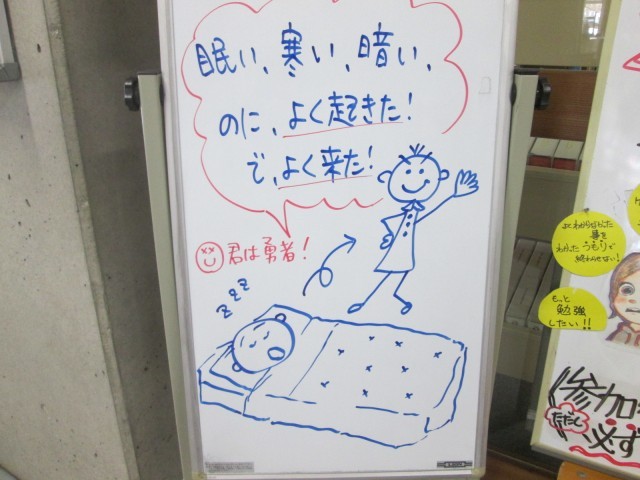 眠い、寒い、暗い、
のに、よく起きた!
で、よく来た!
君は勇者!
zzz
よくわからなかった
事を
わかったつもりで
終わらせない!
もっと
勉強
したい!!
参加
ただし
必ず